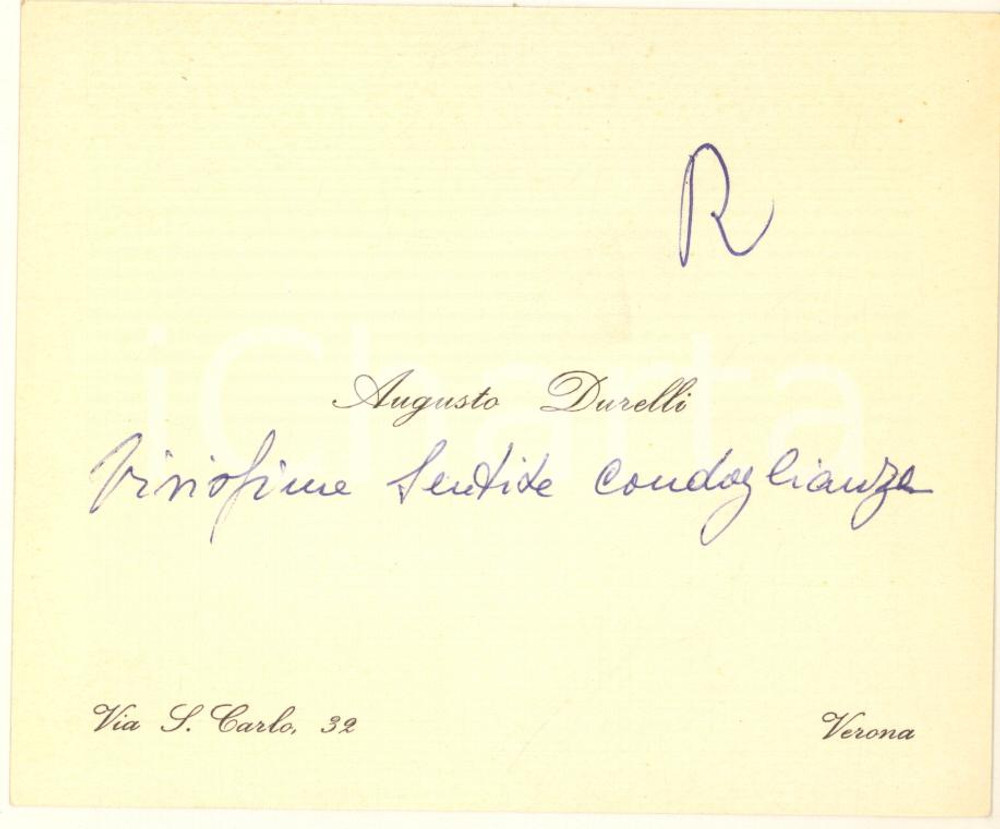 R
iCharta
Augusto Durelli
Vivissime Sentite condoglianze
Via S. Carlo, 32
Verona